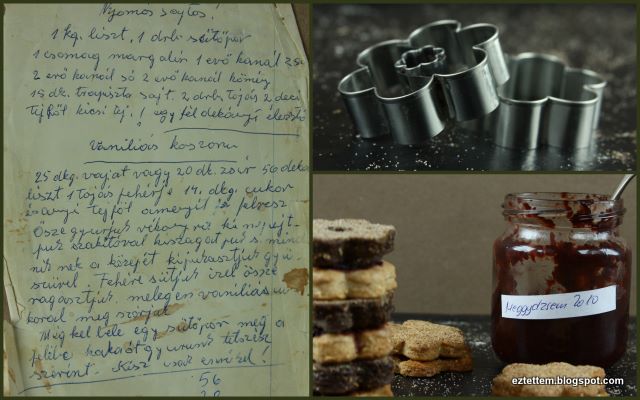 Nyomós sajtos!
1 kg. liszt, 1 drb. sütőpor
1 csomag margarin 1 evő kanál zsír
2 evő kanál só 2 evő kanál kömény
15 dk. trapista sajt. 2 drb. tojás 2 deci
tejföl kicsi tej. 1 egy fél dekányi élesztő
Vaniliás koszoru
25 dkg. vajat vagy 20 dk. zsír 56 deka
liszt 1 tojás fehérje 14. dkg. cukor
és annyi tejföl amenyit
Össze gyurjuk vékonyra ki nyujt-
juk szaktóval kiszagatjuk s mind
nek a közejét kijukasztjuk gyü
szüvel. Fehérre sütjük izzel össze
ragasztjuk. melegen vaniliás cu
korral meg szorjuk
Még kel bele egy sütőpor meg a
felibe kakaót gyurunk tetszés
szerint. Kész csak
56
meggydzsem 2010
eztettem.blogspot.com